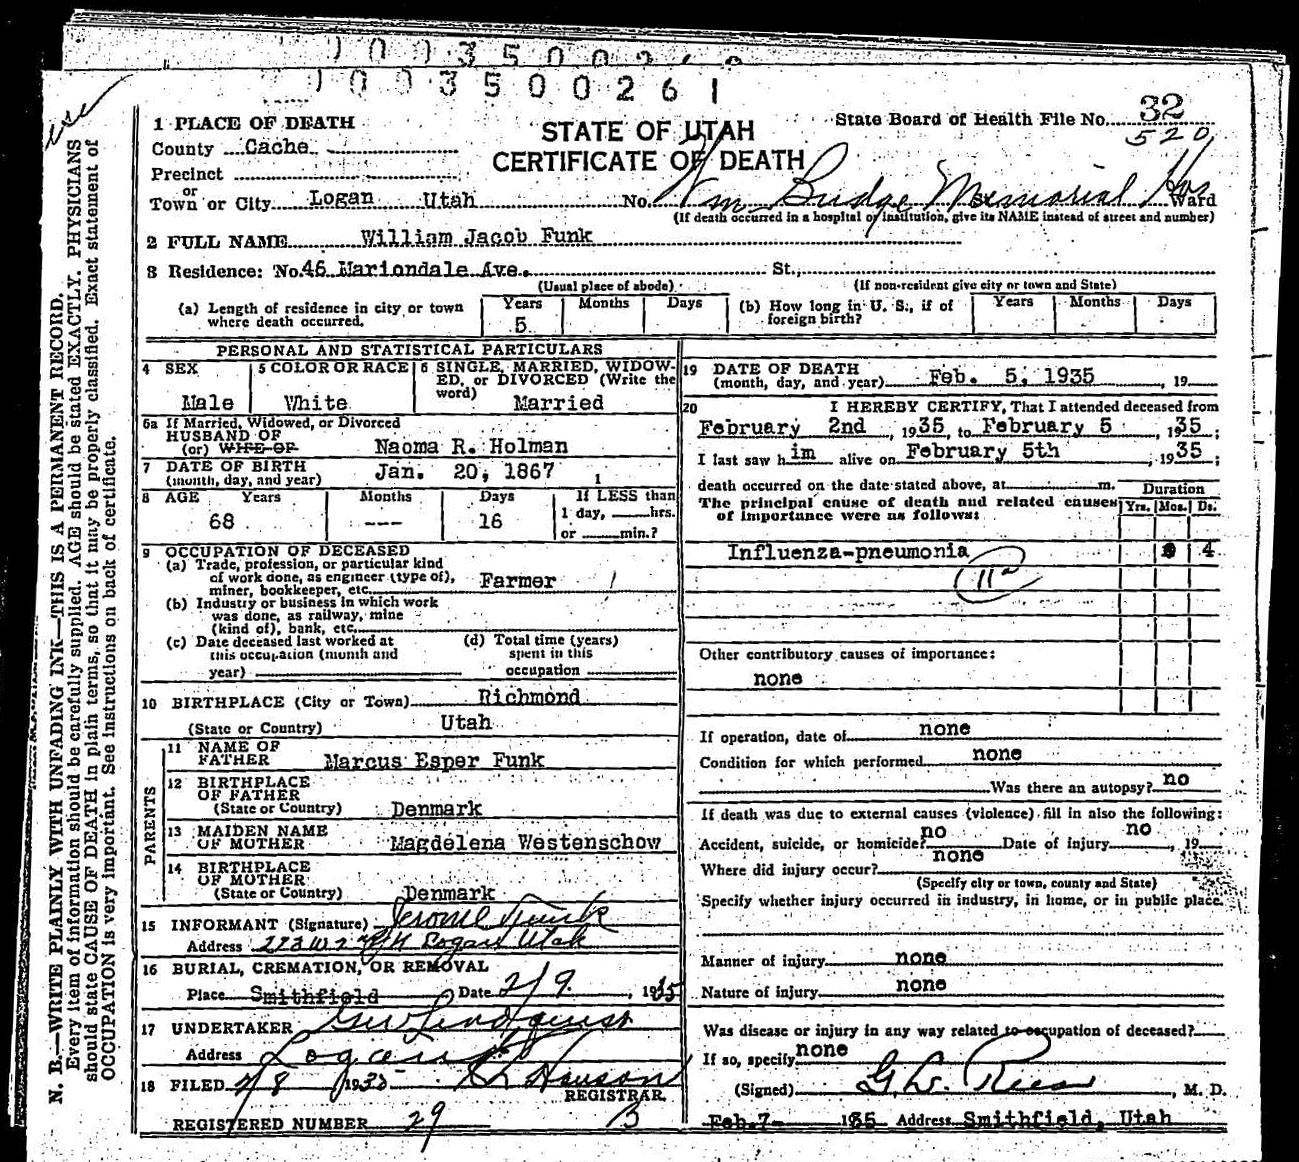 1003500261
use
1 PLACE OF DEATH
STATE OF UTAH
CERTIFICATE OF DEATH
State Board of Health File No. 32
520
County Cache
Precinct
or
Town or City Logan Utah No. Wm Budge Memorial Hos Ward
(If death occurred in a hospital or institution, give its NAME instead of street and number)
2 FULL NAME William Jacob Funk
3 Residence: No. 46 Mariondale Ave. St.,
(Usual place of abode) (If non-resident give city or town and State)
(a) Length of residence in city or town where death occurred. Years 5 Months Days
(b) How long in U. S., if of foreign birth? Years Months Days
PERSONAL AND STATISTICAL PARTICULARS
4 SEX Male
5 COLOR OR RACE White
6 SINGLE, MARRIED, WIDOWED, or DIVORCED (Write the word) Married
6a If Married, Widowed, or Divorced
HUSBAND OF
(or) WIFE OF Naoma R. Holman
7 DATE OF BIRTH
(month, day, and year) Jan. 20, 1867
8 AGE Years 68 Months --- Days 16 If LESS than 1 day, hrs. or min.?
9 OCCUPATION OF DECEASED
(a) Trade, profession, or particular kind
of work done, as engineer (type of),
miner, bookkeeper, etc. Farmer
(b) Industry or business in which work
was done, as railway, mine
(kind of), bank, etc.
(c) Date deceased last worked at
this occupation (month and
year)
(d) Total time (years)
spent in this
occupation
10 BIRTHPLACE (City or Town) Richmond
(State or Country) Utah
PARENTS
11 NAME OF
FATHER Marcus Esper Funk
12 BIRTHPLACE
OF FATHER
(State or Country) Denmark
13 MAIDEN NAME
OF MOTHER Magdelena Westenschow
14 BIRTHPLACE
OF MOTHER
(State or Country) Denmark
15 INFORMANT (Signature) Jerome Funk
Address Logan Utah
16 BURIAL, CREMATION, OR REMOVAL
Place Smithfield Date 2/9, 1935
17 UNDERTAKER Lindquist
Address Logan
18 FILED 2/8 1935 Hanson
REGISTRAR.
REGISTERED NUMBER 29 B
19 DATE OF DEATH
(month, day, and year) Feb. 5, 1935, 19
20 I HEREBY CERTIFY, That I attended deceased from
February 2nd, 1935, to February 5, 1935;
I last saw him alive on February 5th, 1935;
death occurred on the date stated above, at m.
The principal cause of death and related causes
of importance were as follows:
Duration
Yrs. Mos. Ds.
Influenza-pneumonia 4
11a
Other contributory causes of importance:
none
If operation, date of none
Condition for which performed none
Was there an autopsy? no
If death was due to external causes (violence) fill in also the following:
Accident, suicide, or homicide? no Date of injury no, 19
Where did injury occur? none
(Specify city or town, county and State)
Specify whether injury occurred in industry, in home, or in public place.
Manner of injury none
Nature of injury none
Was disease or injury in any way related to occupation of deceased?
If so, specify none
(Signed) Rees, M. D.
Feb. 7- 1935 Address Smithfield, Utah
N. B.—WRITE PLAINLY WITH UNFADING INK—THIS IS A PERMANENT RECORD.
Every item of information should be carefully supplied. AGE should be stated EXACTLY. PHYSICIANS
should state CAUSE OF DEATH in plain terms, so that it may be properly classified. Exact statement of
OCCUPATION is very important. See instructions on back of certificate.